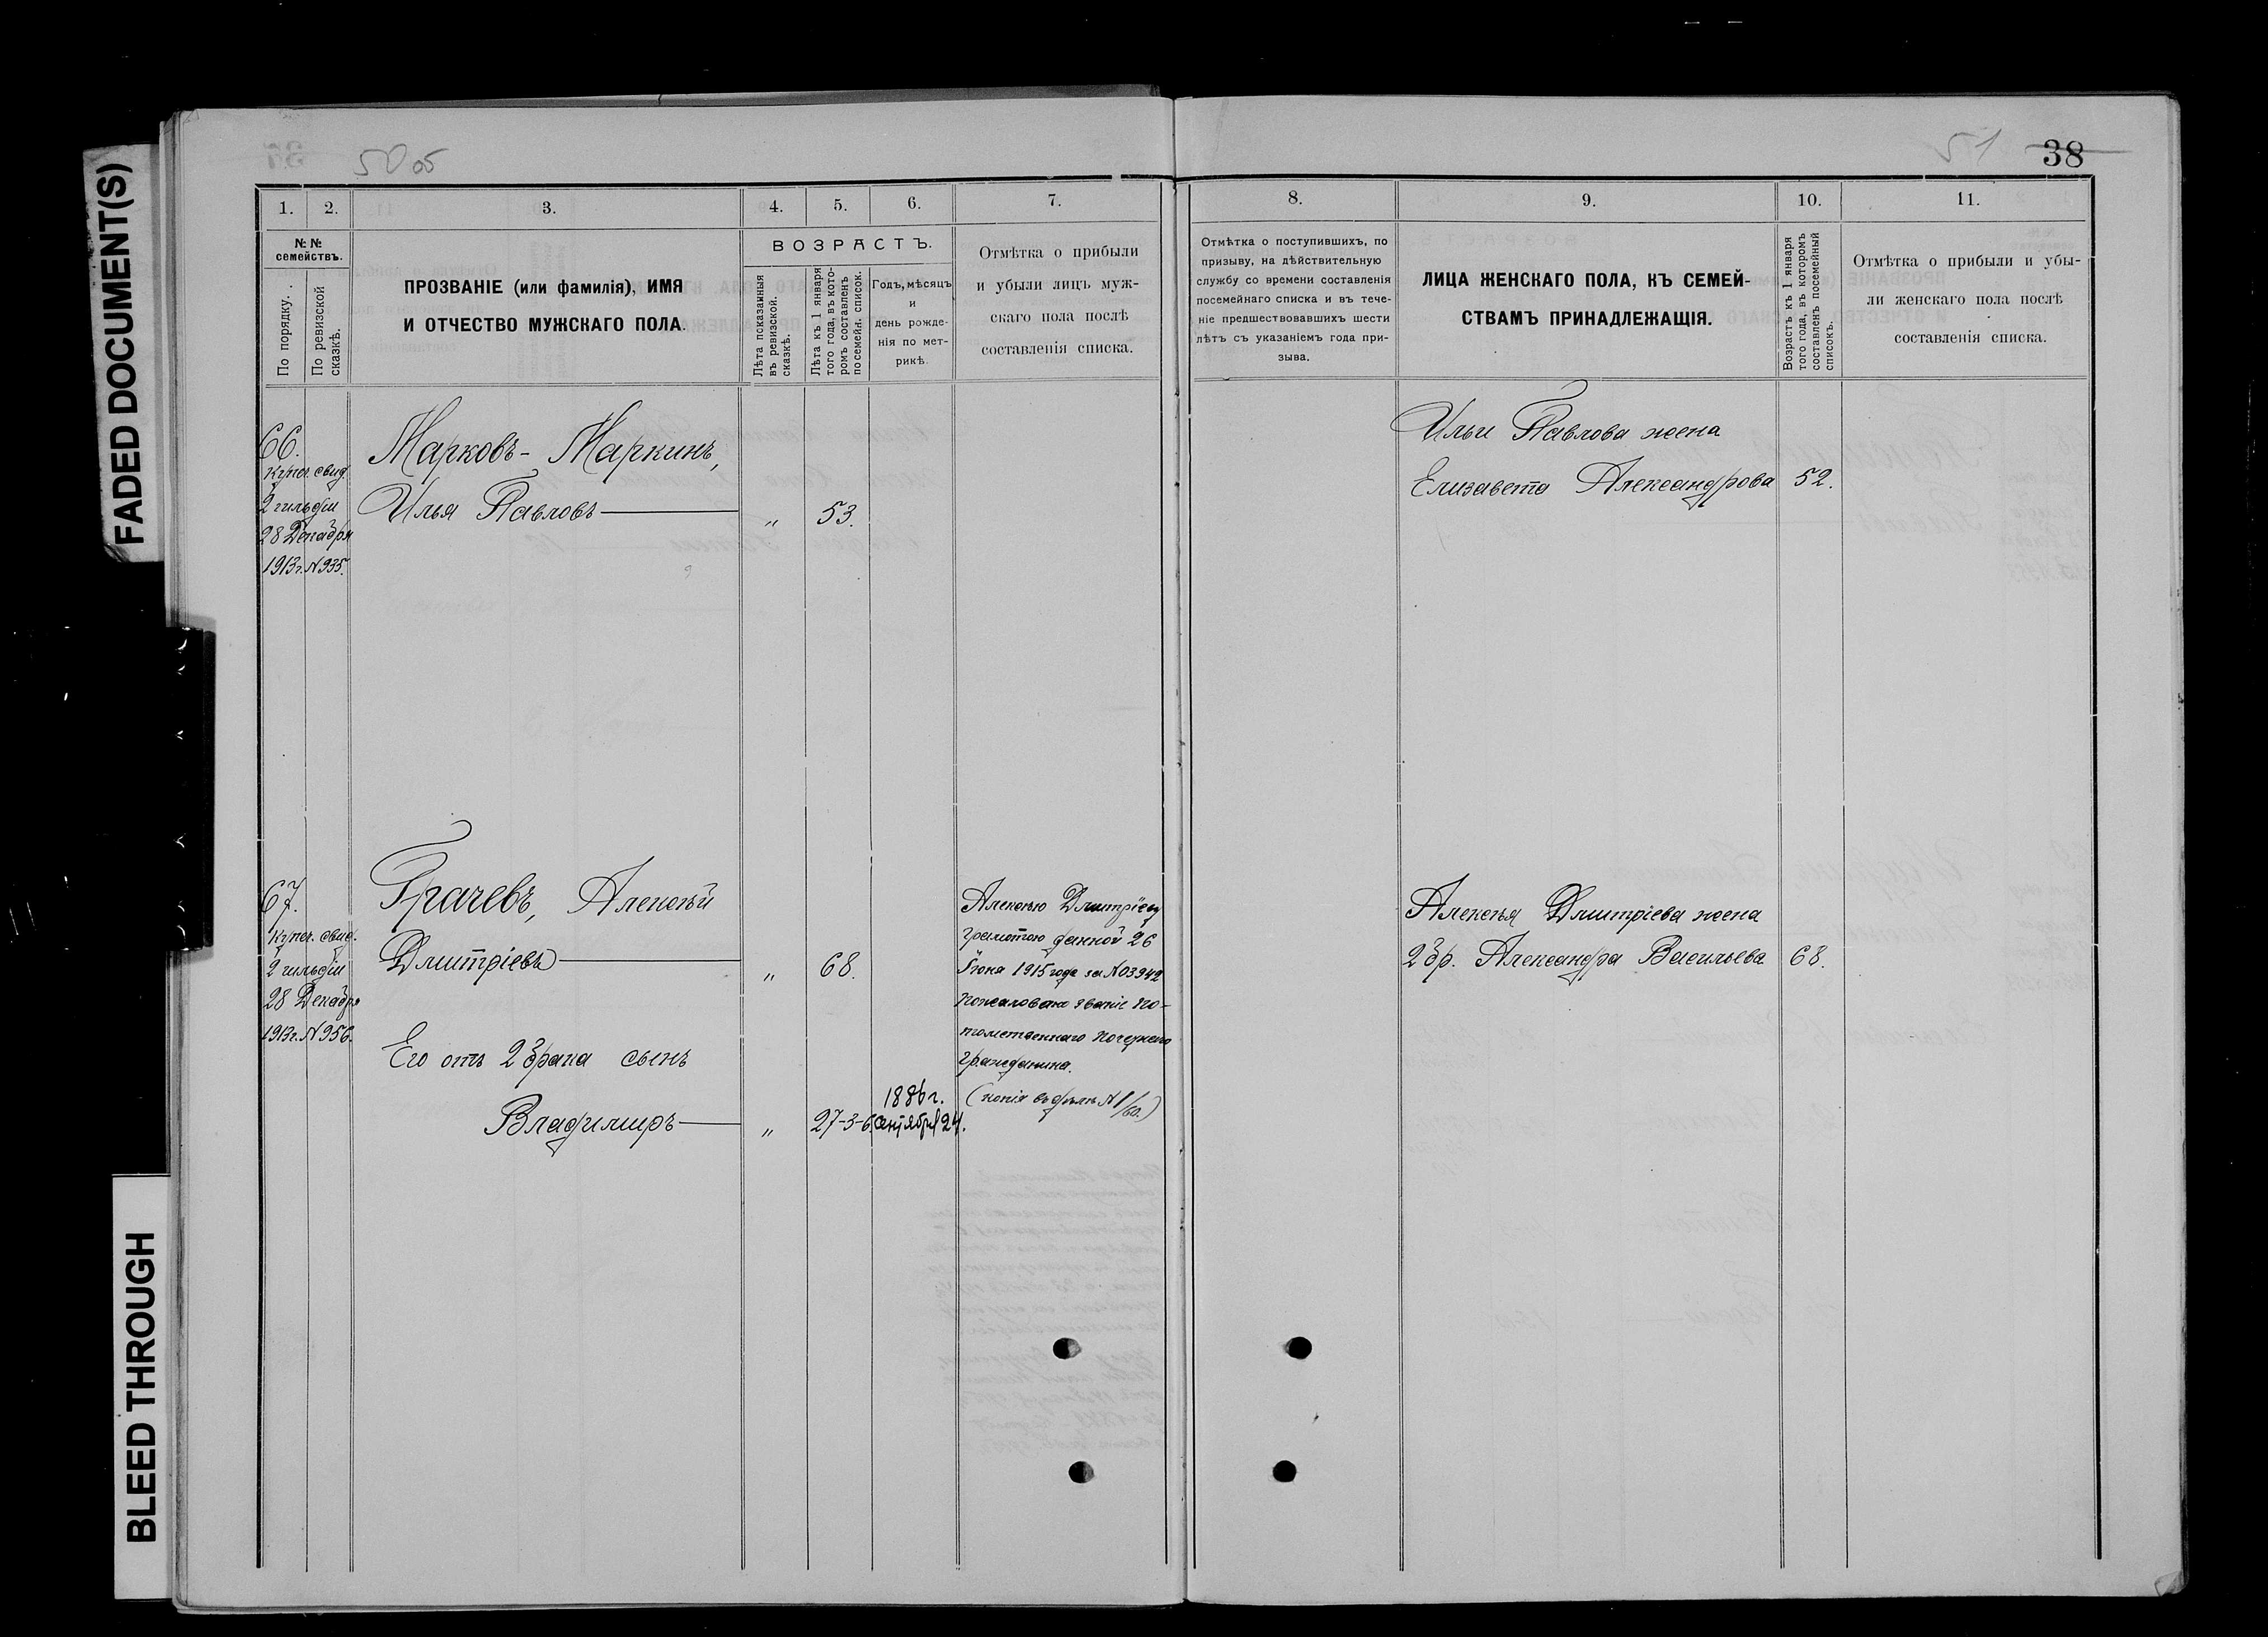 FADED DOCUMENT(S)
BLEED THROUGH
50 об
51 38
1. 2. 3. 4. 5. 6. 7.
№ №
семействъ.
По порядку.
По ревизской
сказкѣ.
ПРОЗВАНІЕ (или фамилія), ИМЯ
И ОТЧЕСТВО МУЖСКАГО ПОЛА.
ВОЗРАСТЪ.
Лѣта показанныя
въ ревизской.
сказкѣ.
Лѣта къ 1 января
того года, въ кото-
ромъ составленъ
посемейн. список.
Годъ, мѣсяцъ
и
день рожде-
нія по мет-
рикѣ.
Отмѣтка о прибыли
и убыли лицъ муж-
скаго пола послѣ
составленія списка.
66.
Купеч. свид.
2 гильдіи
28 Декабря
1913 г. № 935.
Марковъ - Маркинъ,
Илья Павловъ — „ 53.
67.
Купеч. свид.
2 гильдіи
28 Декабря
1913 г. № 956.
Грачевъ, Алексѣй
Дмитріевъ — „ 68.
Его отъ 2 брака сынъ
Владимиръ — „ 27-3-6
1886 г.
Сентября 24.
Алексѣю Дмитріеву
грамотою данной 26
Іюня 1915 года за № 3942
пожаловано званіе по-
томственнаго почетнаго
гражданина.
(копія въ дѣлѣ № 1/60.)
8. 9. 10. 11.
Отмѣтка о поступившихъ, по
призыву, на дѣйствительную
службу со времени составленія
посемейнаго списка и въ тече-
ніе предшествовавшихъ шести
лѣтъ съ указаніемъ года при-
зыва.
ЛИЦА ЖЕНСКАГО ПОЛА, КЪ СЕМЕЙ-
СТВАМЪ ПРИНАДЛЕЖАЩІЯ.
Возрастъ къ 1 января
того года, въ которомъ
составленъ посемейный
списокъ.
Отмѣтка о прибыли и убы-
ли женскаго пола послѣ
составленія списка.
Ильи Павлова жена
Елизавета Александрова 52.
Алексѣя Дмитріева жена
2 бр. Александра Васильева 68.